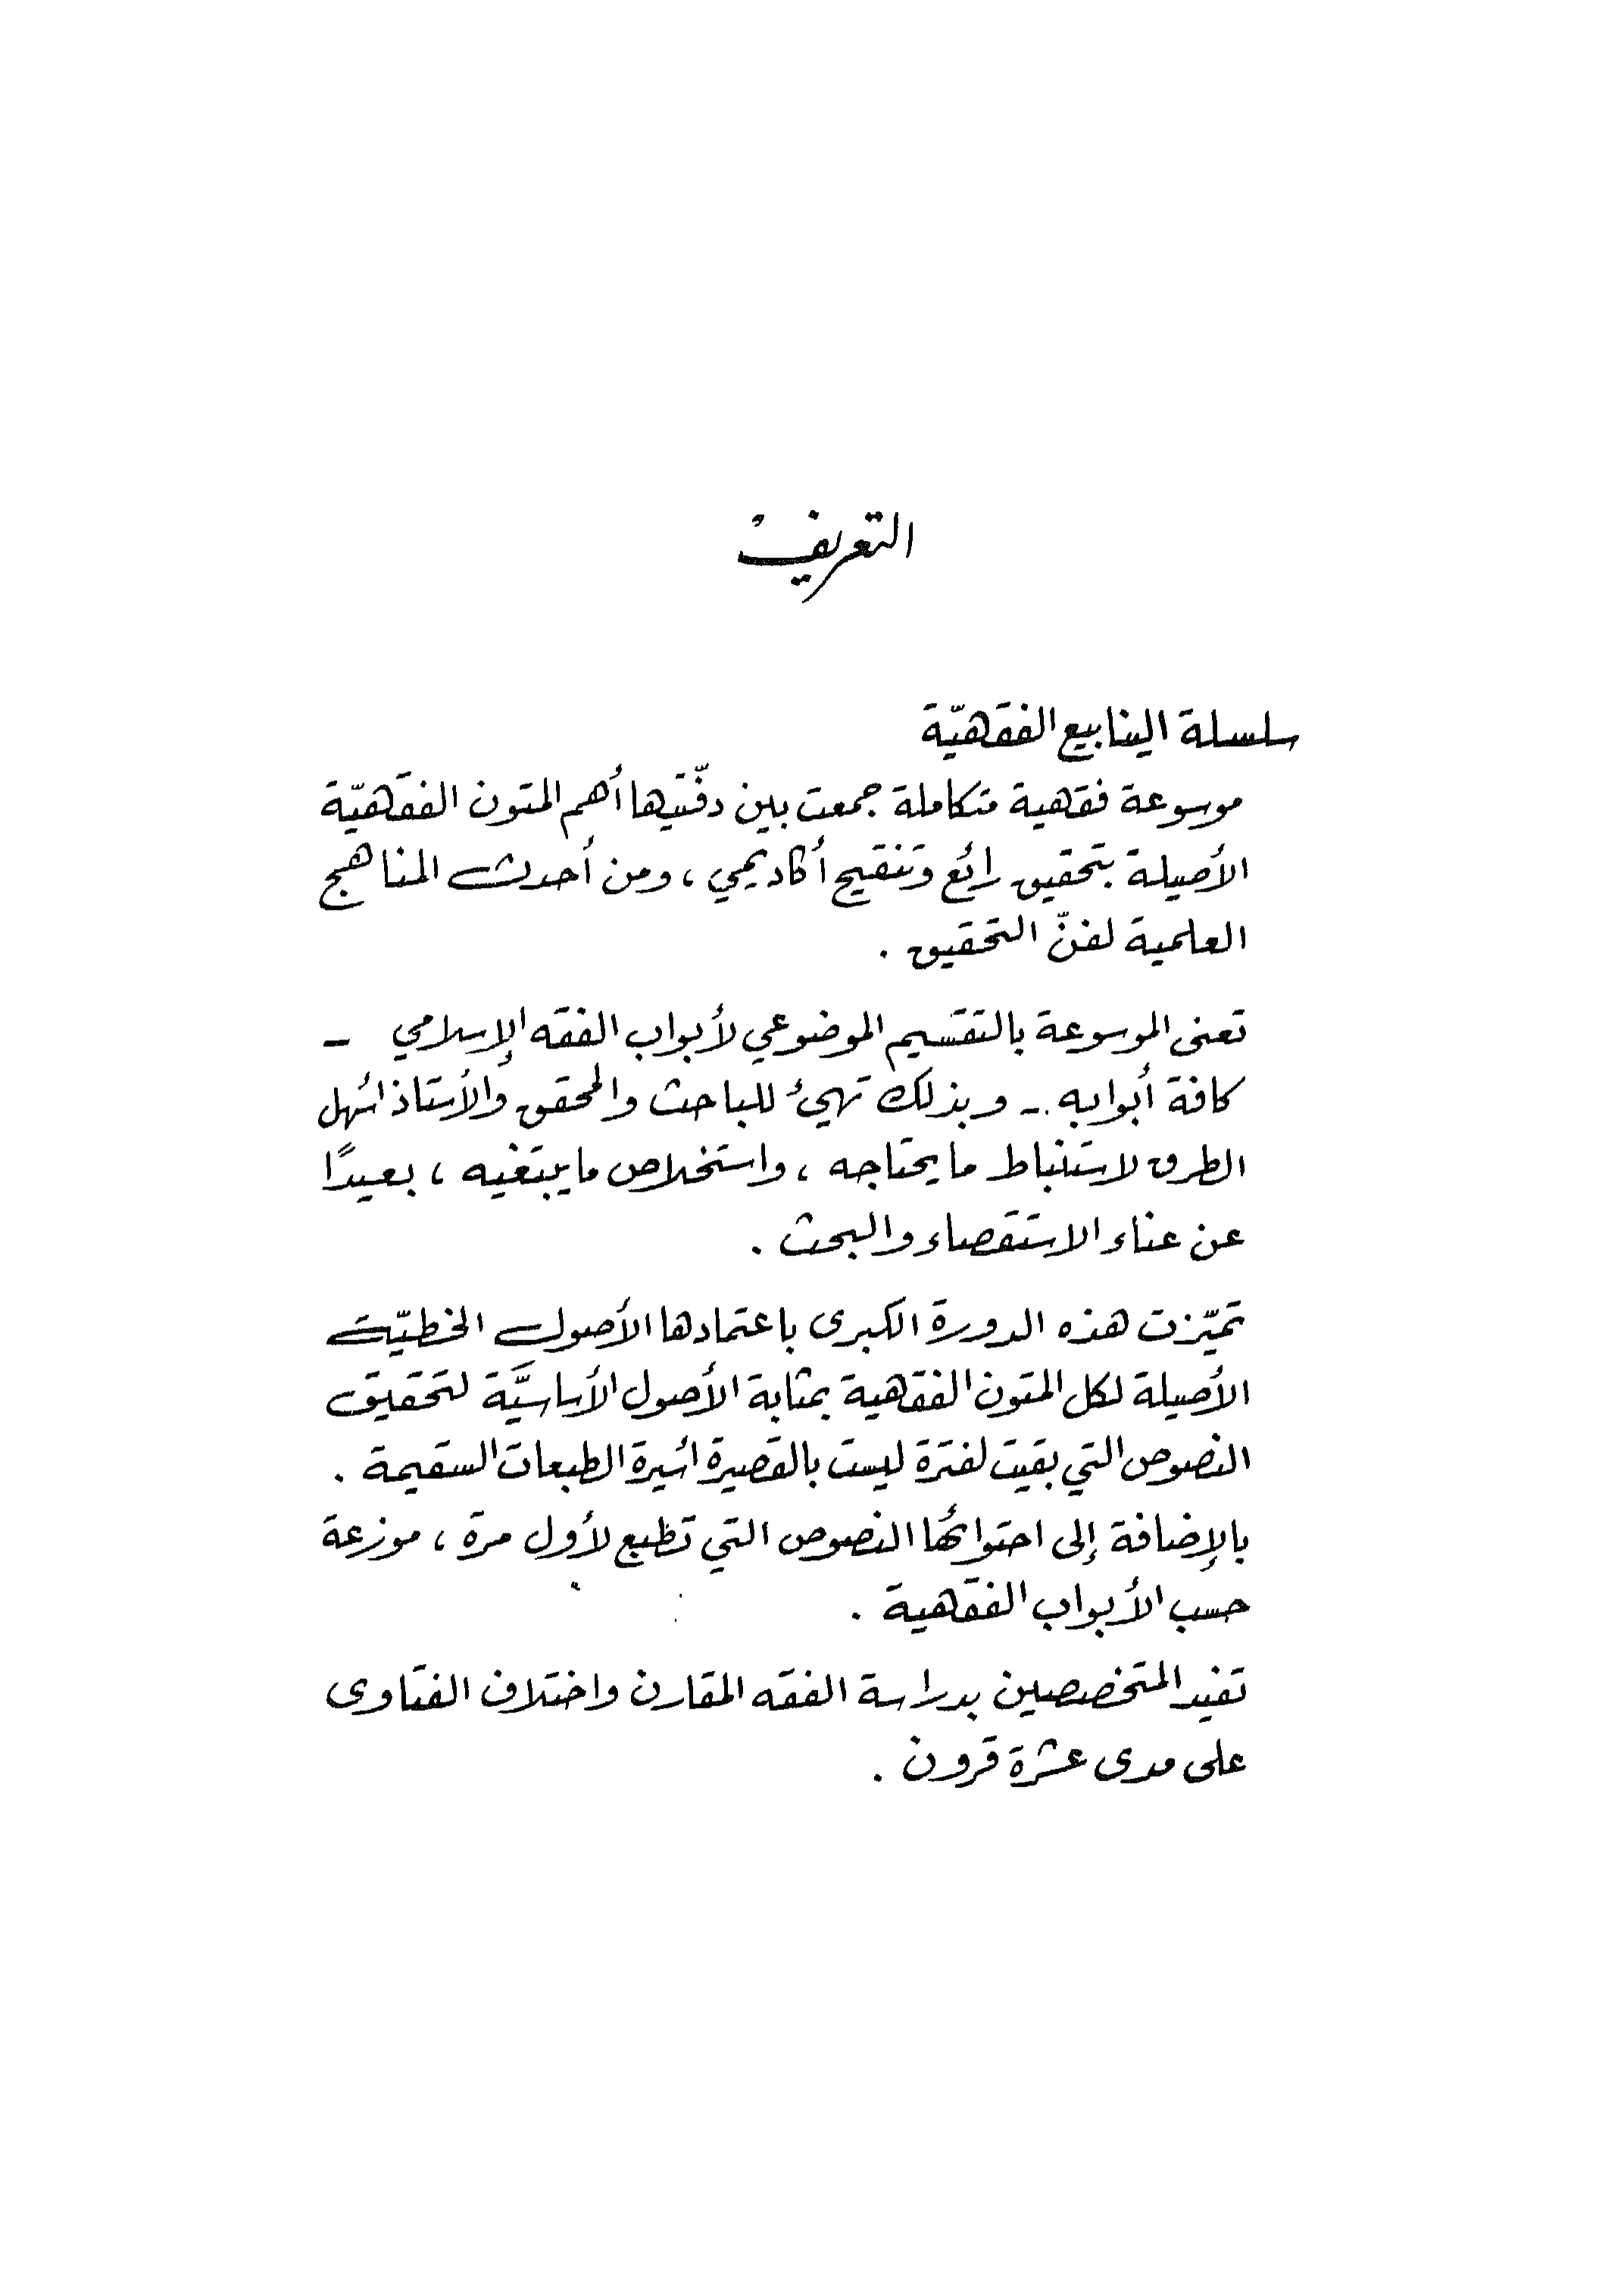 التعريف
سلسلة الينابيع الفقهيّة
موسوعة فقهية متكاملة جمعت بين دفّتيها أهم المتون الفقهيّة
الأصيلة بتحقيق رائع وتنقيح أكاديمي ، ومن أحدث المناهج
العلمية لفنّ التحقيق .
تعنى الموسوعة بالتقسيم الموضوعي لأبواب الفقه الإسلامي –
كافة أبوابه – وبذلك تهيئ للباحث والمحقق والأستاذ أسهل
الطرق لاستنباط ما يحتاجه ، واستخلاص ما يبتغيه ، بعيدًا
عن عناء الاستقصاء والبحث .
تميّزت هذه الدورة الكبرى باعتمادها الأصول الخطيّة
الأصيلة لكل المتون الفقهية بمثابة الأصول الأساسيَّة لتحقيق
النصوص التي بقيت لفترة ليست بالقصيرة أسيرة الطبعات السقيمة .
بالإضافة إلى احتوائها النصوص التي تطبع لأول مرة ، موزعة
حسب الأبواب الفقهية .
تفيد المتخصصين بدراسة الفقه المقارن واختلاف الفتاوى
على مدى عشرة قرون .